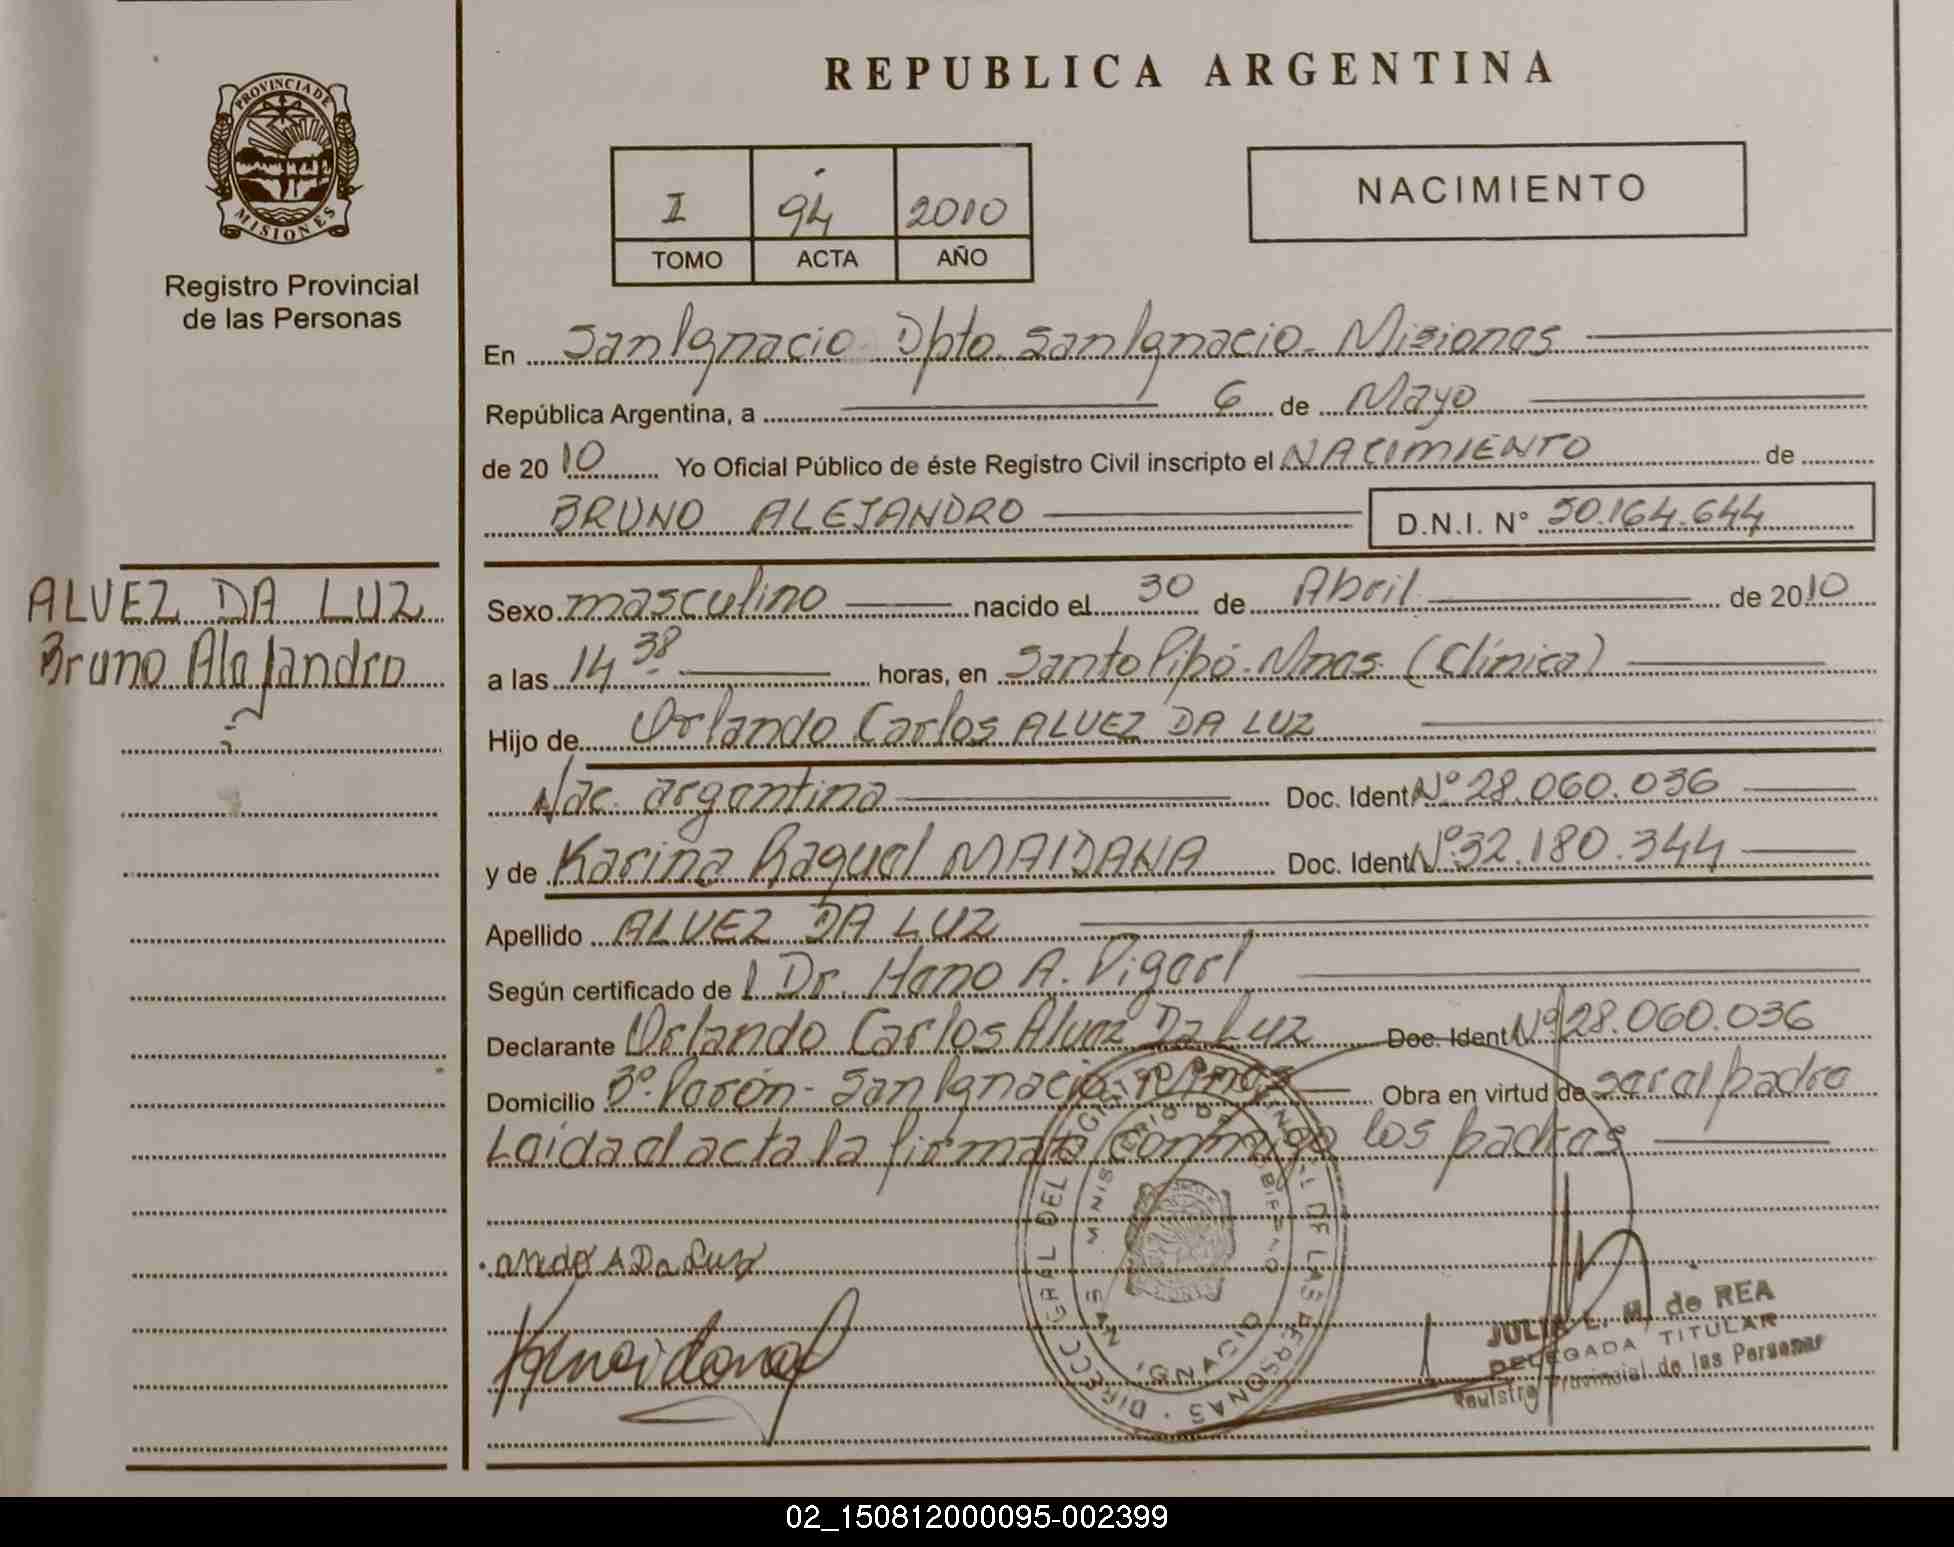 PROVINCIA DE
MISIONES
Registro Provincial
de las Personas
ALVEZ DA LUZ
Bruno Alejandro
REPUBLICA ARGENTINA
I 94 2010
TOMO ACTA AÑO
NACIMIENTO
En San Ignacio Dpto. San Ignacio - Misiones
República Argentina, a 6 de Mayo
de 2010 Yo Oficial Público de éste Registro Civil inscripto el NACIMIENTO de
BRUNO ALEJANDRO D.N.I. N° 50.164.644
Sexo masculino nacido el 30 de Abril de 2010
a las 14 38 horas, en Santo Pipó - Mnes. (Clínica)
Hijo de Orlando Carlos ALVEZ DA LUZ
Nac. argentina Doc. Ident Nº 28.060.036
y de Karina Raquel MAIDANA Doc. Ident Nº 32.180.344
Apellido ALVEZ DA LUZ
Según certificado de l Dr. Hano A.
Declarante Orlando Carlos Alvez Da Luz Doc. Ident Nº 28.060.036
Domicilio Bº. Perón - San Ignacio - Mnes Obra en virtud de ser el padre
Leida el acta la firman conmigo los padres
A Da Luz
DIRECC GRAL DEL REGISTRO PROVINCIAL DE LAS PERSONAS
MINISTERIO DE GOBIERNO
SAN IGNACIO
JULIA L. M. de REA
DELEGADA TITULAR
Registro Provincial de las Personas
02_150812000095-002399